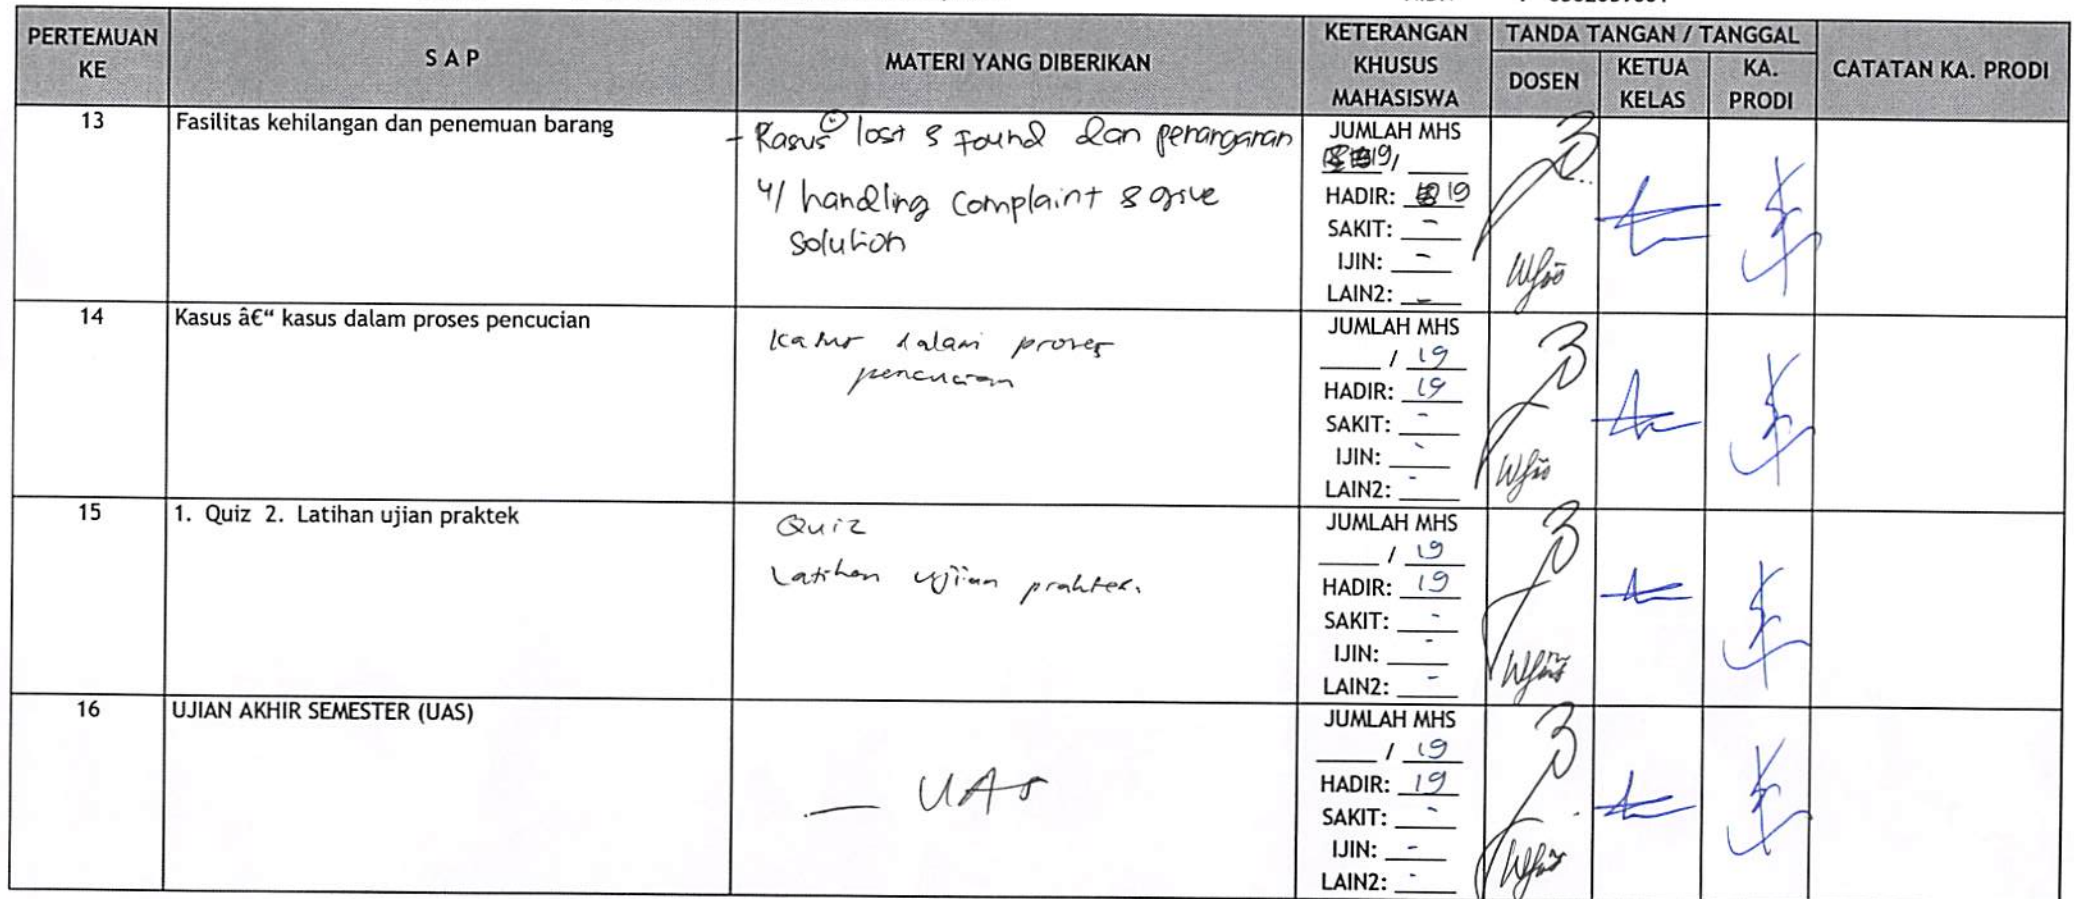 PERTEMUAN KE
S A P
MATERI YANG DIBERIKAN
KETERANGAN KHUSUS MAHASISWA
TANDA TANGAN / TANGGAL
DOSEN
KETUA KELAS
KA. PRODI
CATATAN KA. PRODI
13
Fasilitas kehilangan dan penemuan barang
- Kasus² lost & Found dan penanganan
u/ handling complaint & give
solution
JUMLAH MHS
19/
HADIR: 19
SAKIT: -
IJIN: -
LAIN2: -
14
Kasus â€“ kasus dalam proses pencucian
Kasus dalam proses
pencucian
JUMLAH MHS
/ 19
HADIR: 19
SAKIT: -
IJIN: -
LAIN2: -
15
1. Quiz 2. Latihan ujian praktek
Quiz
Latihan ujian praktek.
JUMLAH MHS
/ 19
HADIR: 19
SAKIT: -
IJIN: -
LAIN2: -
16
UJIAN AKHIR SEMESTER (UAS)
— UAS
JUMLAH MHS
/ 19
HADIR: 19
SAKIT: -
IJIN: -
LAIN2: -